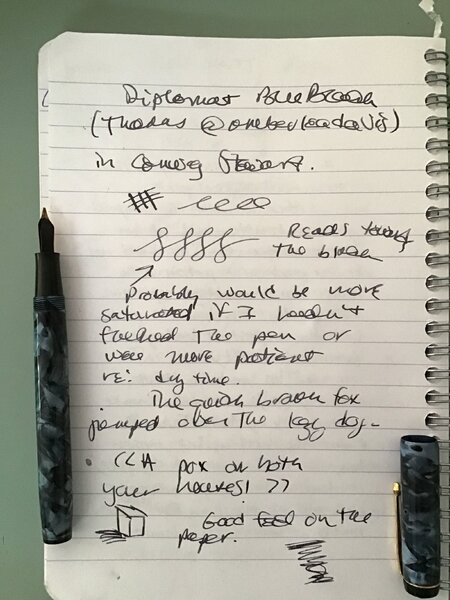 Diplomat Blue Black
(Thanks @onebeyloadavis)
in Conway Stewart.
Reads toward
the black
Probably would be more
saturated if I hadn't
flushed the pen or
were more patient
re: dry time.
The quick brown fox
jumped over the lazy dog.
"A pox on both
your houses!"
Good feel on the
paper.